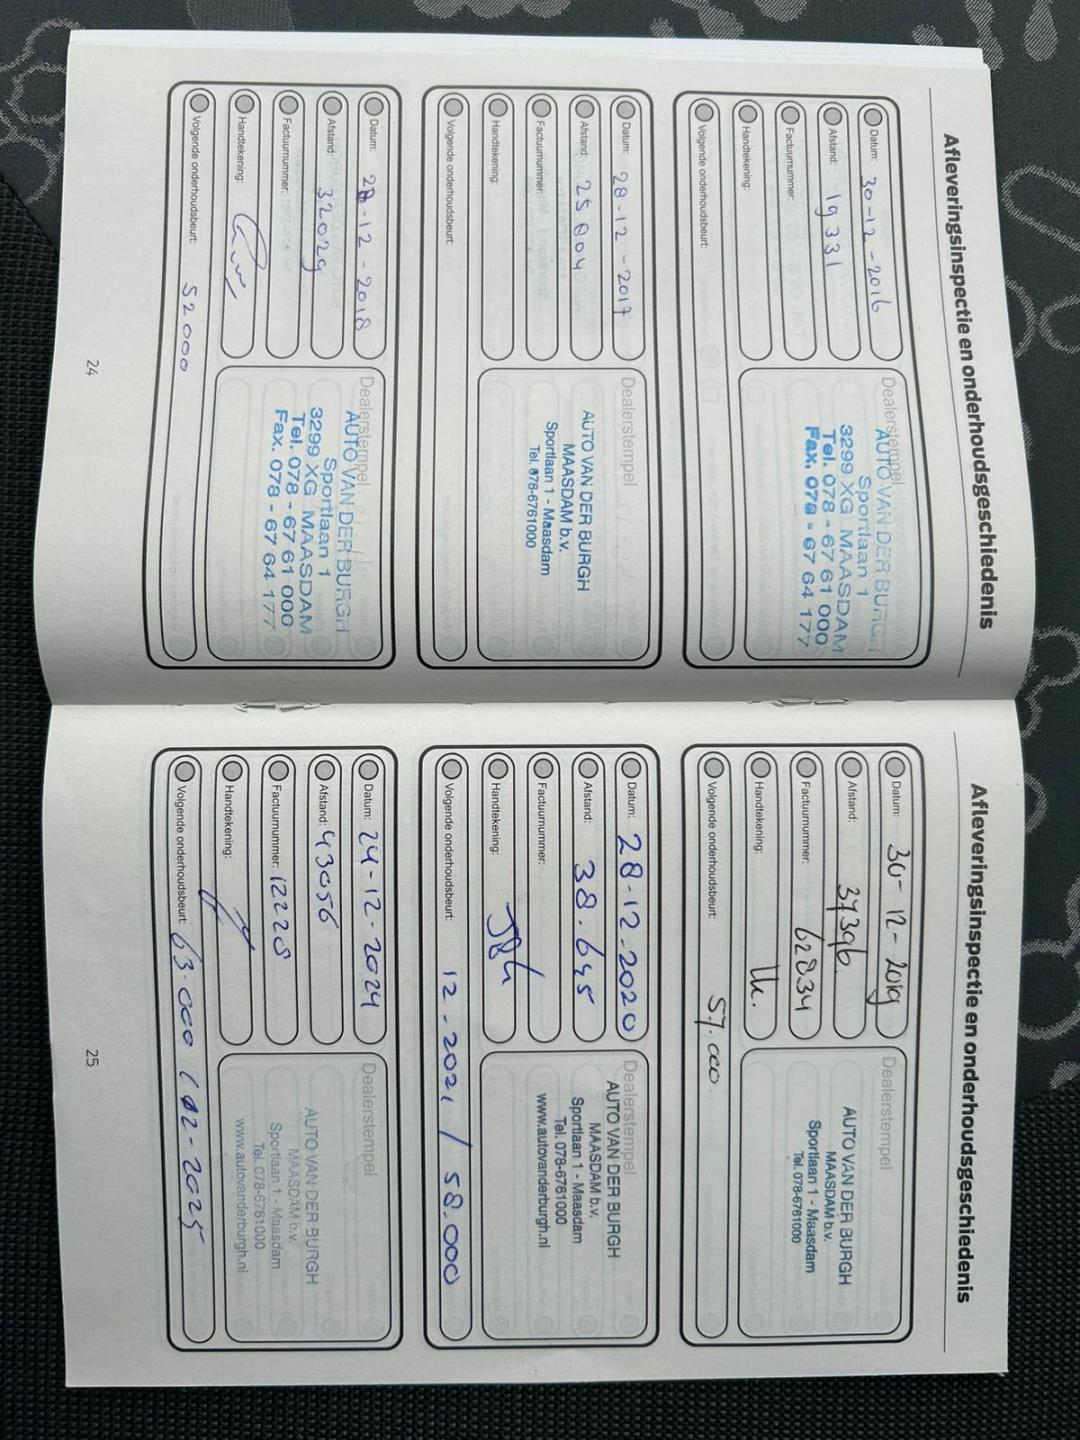 Afleveringsinspectie en onderhoudsgeschiedenis
Datum: 30-12-2016
Afstand: 19331
Factuurnummer:
Handtekening:
Volgende onderhoudsbeurt:
Dealerstempel
AUTO VAN DER BURGH
Sportlaan 1
3299 XG MAASDAM
Tel. 078 - 67 61 000
Fax. 078 - 67 64 177
Datum: 28-12-2017
Afstand: 25804
Factuurnummer:
Handtekening:
Volgende onderhoudsbeurt:
Dealerstempel
AUTO VAN DER BURGH
MAASDAM b.v.
Sportlaan 1 - Maasdam
Tel. 078-6761000
Datum: 28-12-2018
Afstand: 32029
Factuurnummer:
Handtekening:
Volgende onderhoudsbeurt: 52000
Dealerstempel
AUTO VAN DER BURGH
Sportlaan 1
3299 XG MAASDAM
Tel. 078 - 67 61 000
Fax. 078 - 67 64 177
24
Afleveringsinspectie en onderhoudsgeschiedenis
Datum: 30-12-2019
Afstand: 37396
Factuurnummer: 62834
Handtekening:
Volgende onderhoudsbeurt: 57.000
Dealerstempel
AUTO VAN DER BURGH
MAASDAM b.v.
Sportlaan 1 - Maasdam
Tel. 078-6761000
Datum: 28-12-2020
Afstand: 38.645
Factuurnummer:
Handtekening:
Volgende onderhoudsbeurt: 12-2021 / 58.000
Dealerstempel
AUTO VAN DER BURGH
MAASDAM b.v.
Sportlaan 1 - Maasdam
Tel. 078-6761000
www.autovanderburgh.nl
Datum: 24-12-2024
Afstand: 43056
Factuurnummer: 12228
Handtekening:
Volgende onderhoudsbeurt: 63.000 / 12-2025
Dealerstempel
AUTO VAN DER BURGH
MAASDAM b.v.
Sportlaan 1 - Maasdam
Tel. 078-6761000
www.autovanderburgh.nl
25